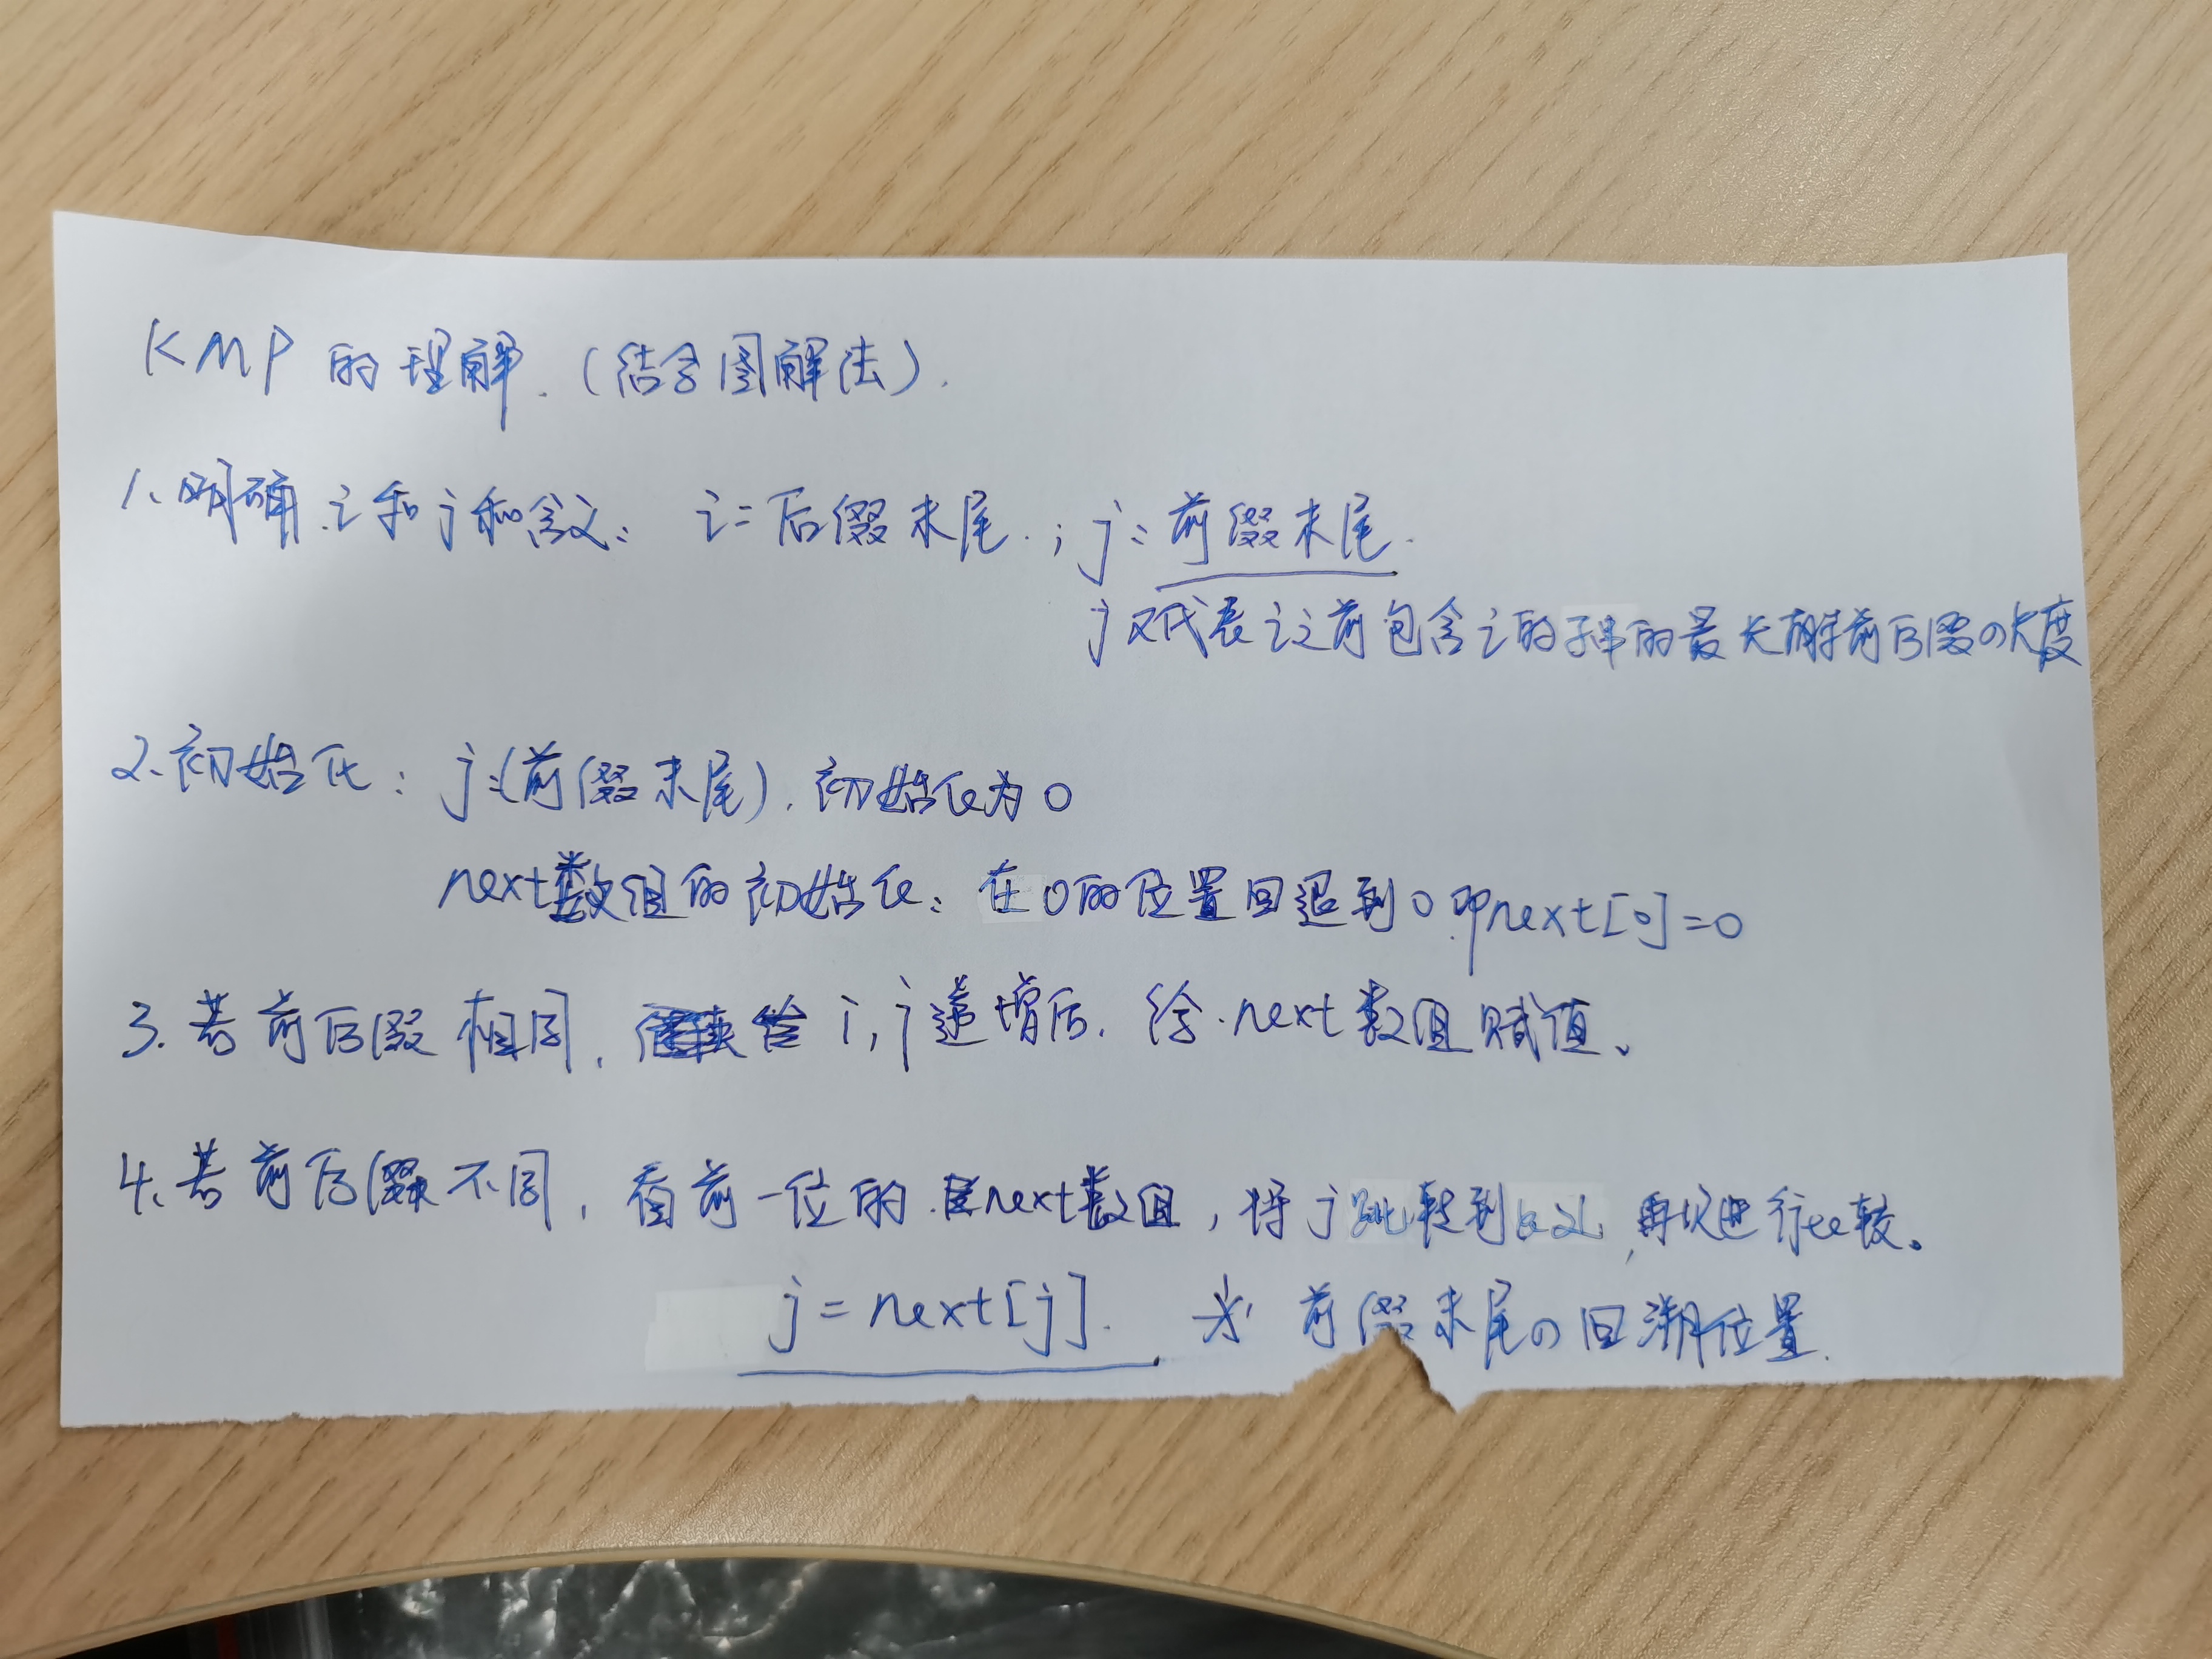 KMP 的理解.(结合图解法).
1、明确 i 和 j 和含义: i=后缀末尾.; j:前缀末尾.
j 又代表 i 之前包含 i 的子串的最大相等前后缀の长度
2、初始化: j:(前缀末尾).初始化为 0
next数组的初始化:在0的位置回退到0 即next[0]=0
3.若前后缀相同, i,j递增后.给.next数组赋值。
4、若前后缀不同,看前一位的 next数组,将j跳转到 ,再次进行比较。
j=next[j]. ※ 前缀末尾の回溯位置.